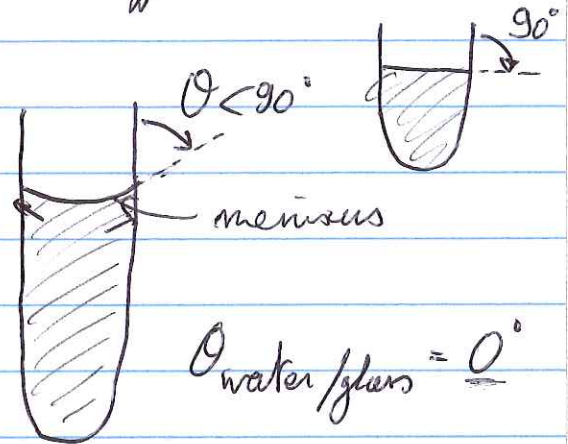 90°
θ < 90°
meniscus
θ water/glass = 0°